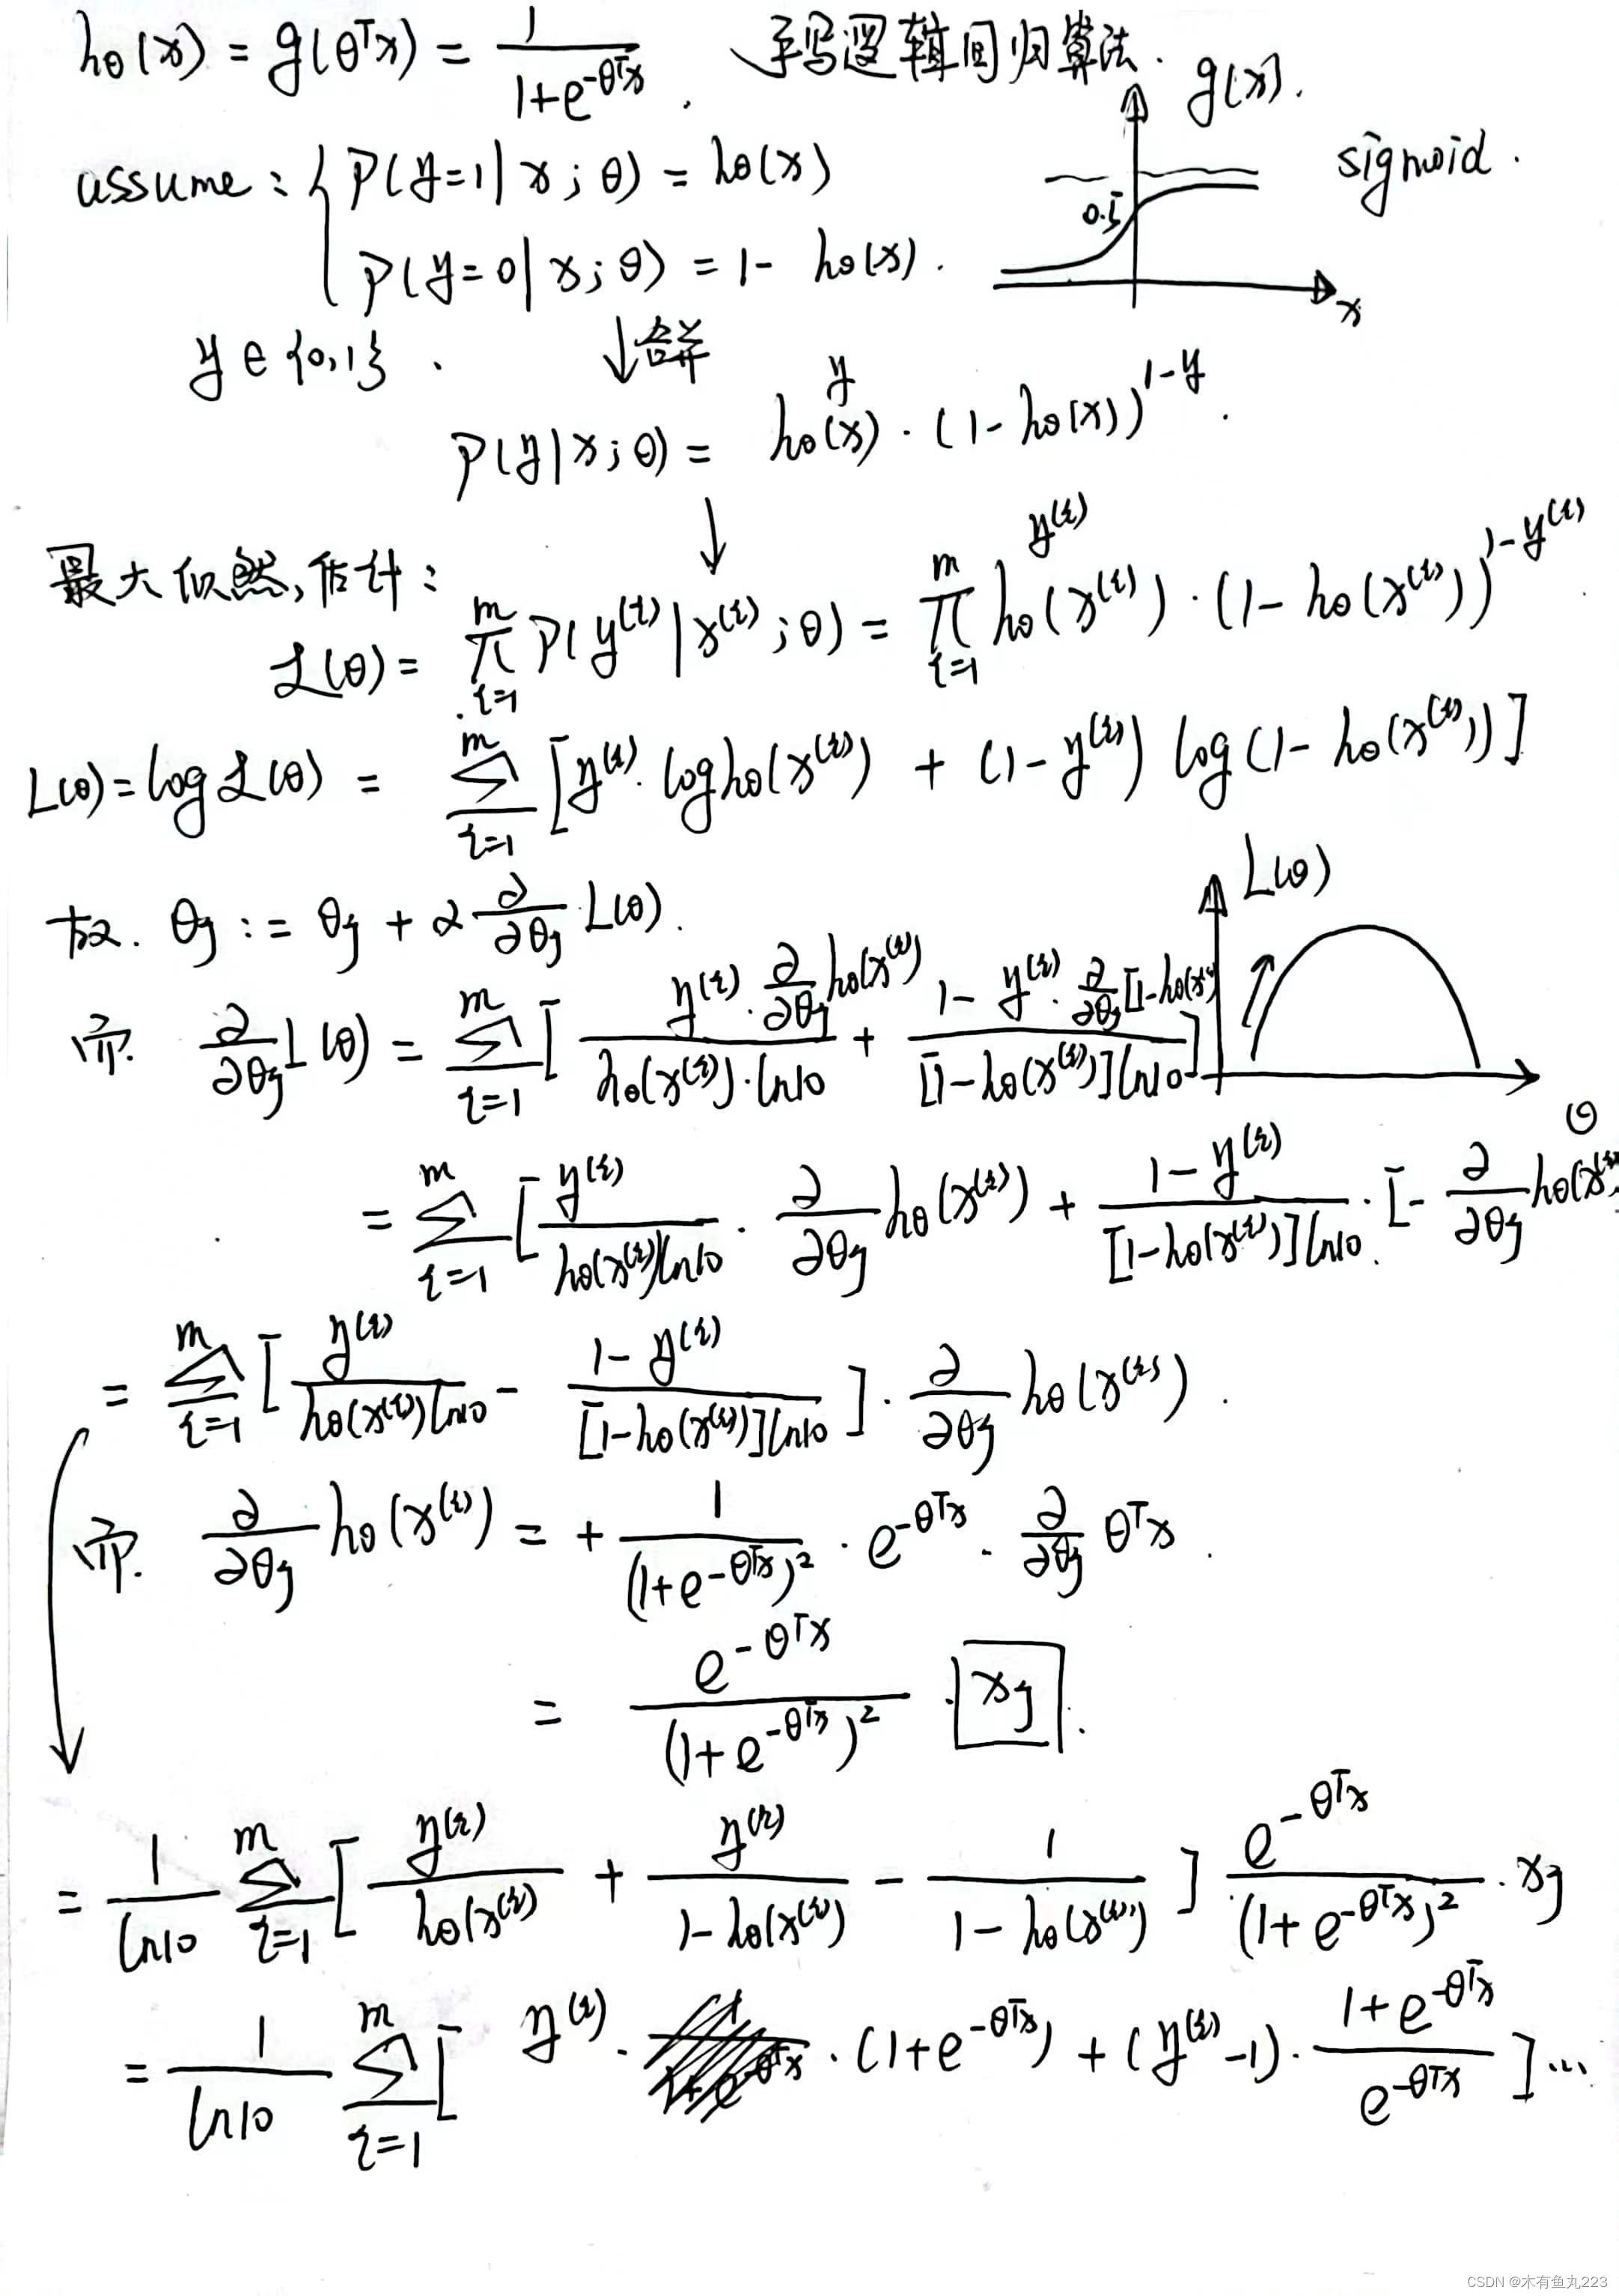 hθ(x) = g(θᵀx) = 1/(1+e^(-θᵀx)) . 手写逻辑回归算法.
g(x).
sigmoid.
0.5
x
assume: { P(y=1|x;θ) = hθ(x)
P(y=0|x;θ) = 1 - hθ(x).
y∈{0,1}. ↓合并
P(y|x;θ) = hθ(x)^y · (1-hθ(x))^(1-y).
↓
最大似然估计:
ℒ(θ) = ∏_{i=1}^{m} P(y^(i)|x^(i);θ) = ∏_{i=1}^{m} hθ(x^(i))^(y^(i)) · (1-hθ(x^(i)))^(1-y^(i)).
L(θ) = log ℒ(θ) = ∑_{i=1}^{m} [y^(i)·log hθ(x^(i)) + (1-y^(i)) log(1-hθ(x^(i)))]
故. θj := θj + α ∂/∂θj L(θ).
L(θ)
θ
而. ∂/∂θj L(θ) = ∑_{i=1}^{m} [ (y^(i)·∂/∂θj hθ(x^(i)))/(hθ(x^(i))·ln10) + (1-y^(i)·∂/∂θj[1-hθ(x^(i)))/([1-hθ(x^(i))]ln10) ]
= ∑_{i=1}^{m} [ y^(i)/(hθ(x^(i))ln10) · ∂/∂θj hθ(x^(i)) + (1-y^(i))/([1-hθ(x^(i))]ln10) · [- ∂/∂θj hθ(x^(i))
= ∑_{i=1}^{m} [ y^(i)/(hθ(x^(i))ln10) - (1-y^(i))/([1-hθ(x^(i))]ln10) ] · ∂/∂θj hθ(x^(i)).
而. ∂/∂θj hθ(x^(i)) = + 1/(1+e^(-θᵀx))² · e^(-θᵀx) · ∂/∂θj θᵀx.
= e^(-θᵀx)/(1+e^(-θᵀx))² · xj.
= 1/ln10 ∑_{i=1}^{m} [ y^(i)/hθ(x^(i)) + y^(i)/(1-hθ(x^(i))) - 1/(1-hθ(x^(i))) ] e^(-θᵀx)/(1+e^(-θᵀx))² · xj
= 1/ln10 ∑_{i=1}^{m} [ y^(i) · (1+e^(-θᵀx)) + (y^(i)-1) · (1+e^(-θᵀx))/e^(-θᵀx) ]...
CSDN @木有鱼丸223